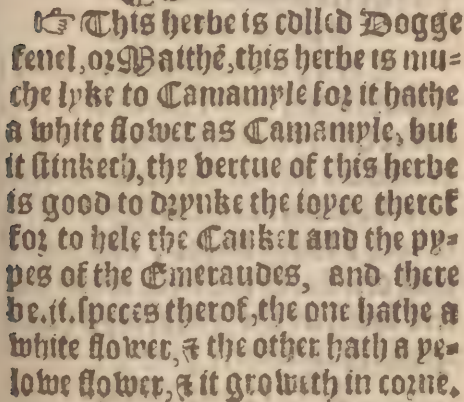 ☞ This herbe is colled Dogge
fenel, or Matthé, this herbe is mu=
che lyke to Camamyle for it hathe
a white flower as Camamyle, but
it stinketh, the vertue of this herbe
is good to drynke the ioyce therof
for to hele the Canker and the py=
pes of the Emeraudes, and there
be.ii.speces therof, the one hathe a
white flower, & the other hath a ye=
lowe flower, & it groweth in corne.